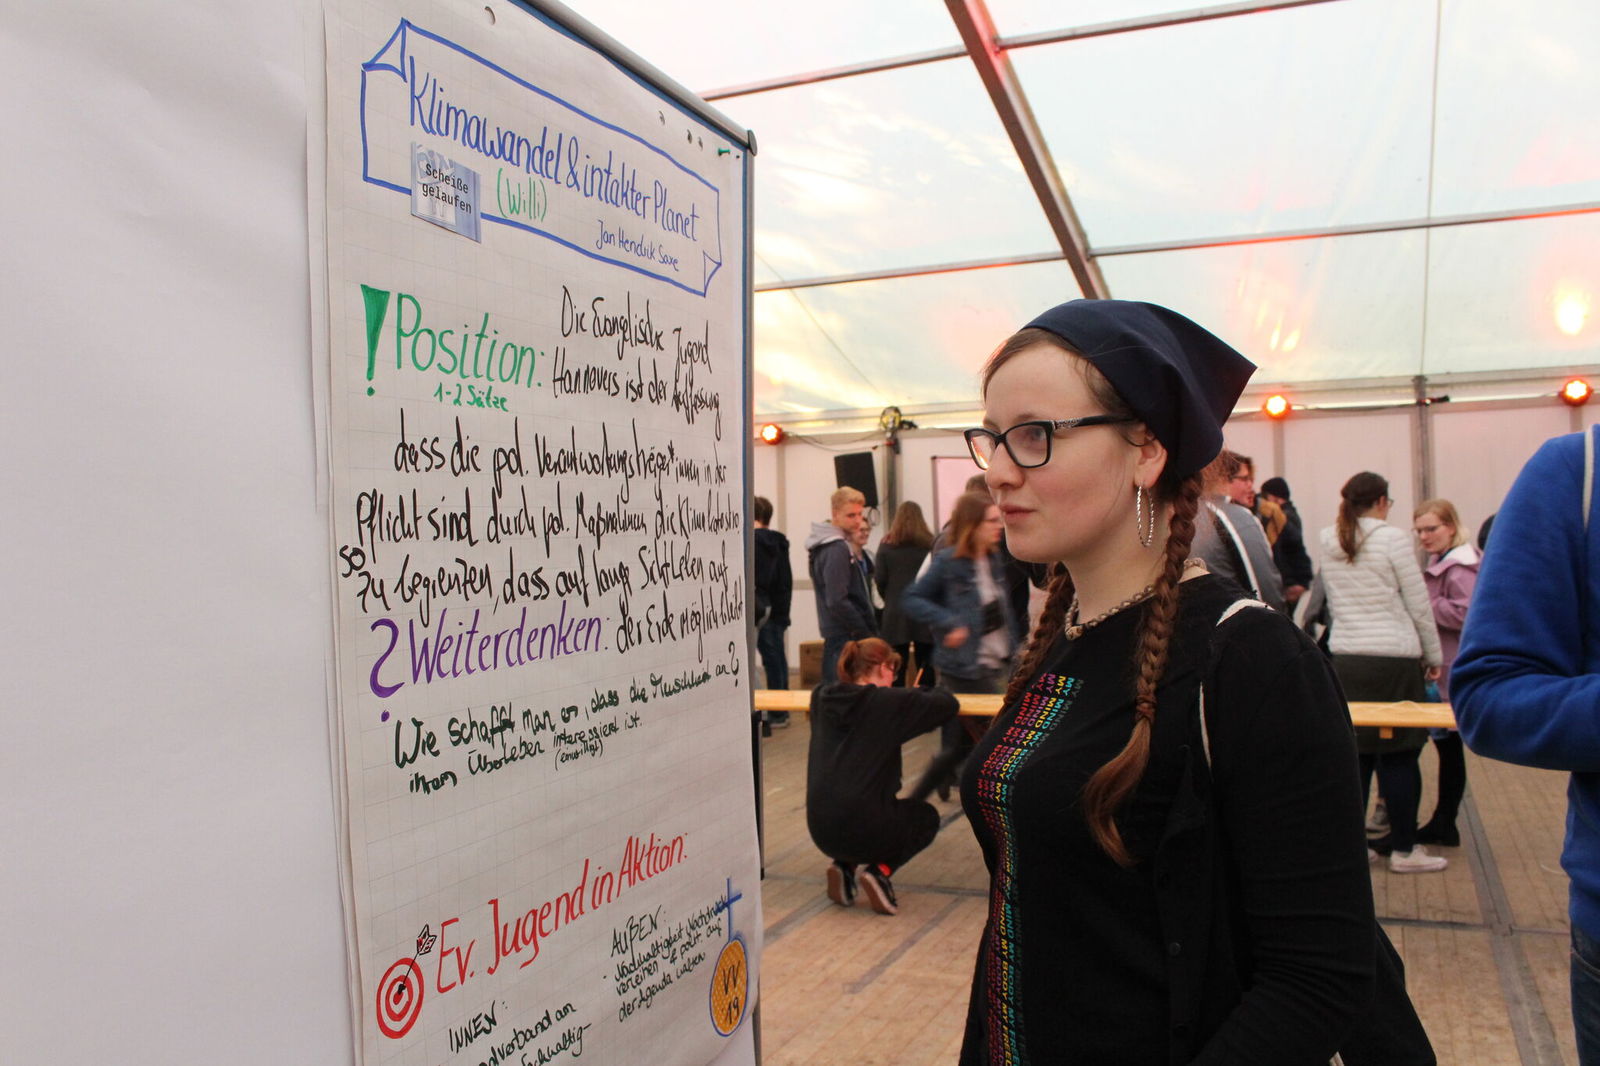 Klimawandel & intakter Planet
scheiße
gelaufen
(Willi)
Jan Hendrik Saxe
! Position:
1-2 Sätze
Die Evangelische Jugend
Hannovers ist der Auffassung
dass die pol. Verantwortungsträger*innen in der
Pflicht sind durch pol. Maßnahmen die Klimakatastro
so
zu begrenzen, dass auf lange Sicht Leben auf
? Weiterdenken: der Erde möglich bleibt
Wie schafft man es, dass die Menschheit an ?
ihrem Überleben interessiert ist.
Ev. Jugend in Aktion:
INNEN:
AUßEN:
- Nachhaltigkeit Nachdruck
verleihen & polit. auf
der Agenda halten
VV
19
MY MIND MY BODY MY